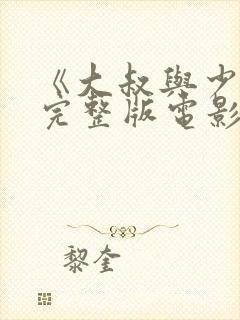 《大叔與少
完整版電影
黎奎